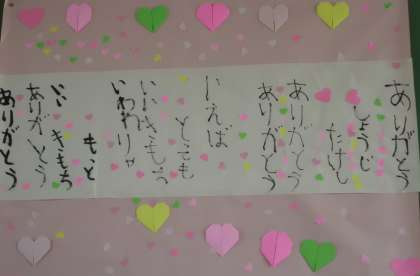 ありがとう
しょうじ
たけし
ありがとう
ありがとう
いえば
とても
いいきもち
いわれりゃ
もっと
いいきもち
ありがとう
ありがとう